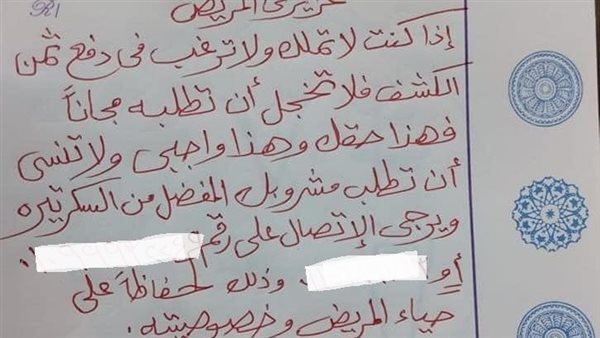 عزيزى المريض
إذا كنت لا تملك ولا ترغب فى دفع ثمن
الكشف فلا تخجل أن تطلبه مجاناً
فهذا حقك وهذا واجبى ولا تنسى
أن تطلب مشروبك المفضل من السكرتيره
ويرجى الإتصال على رقم
أو وذلك لحفاظاً على
حياء المريض وخصوصيته.